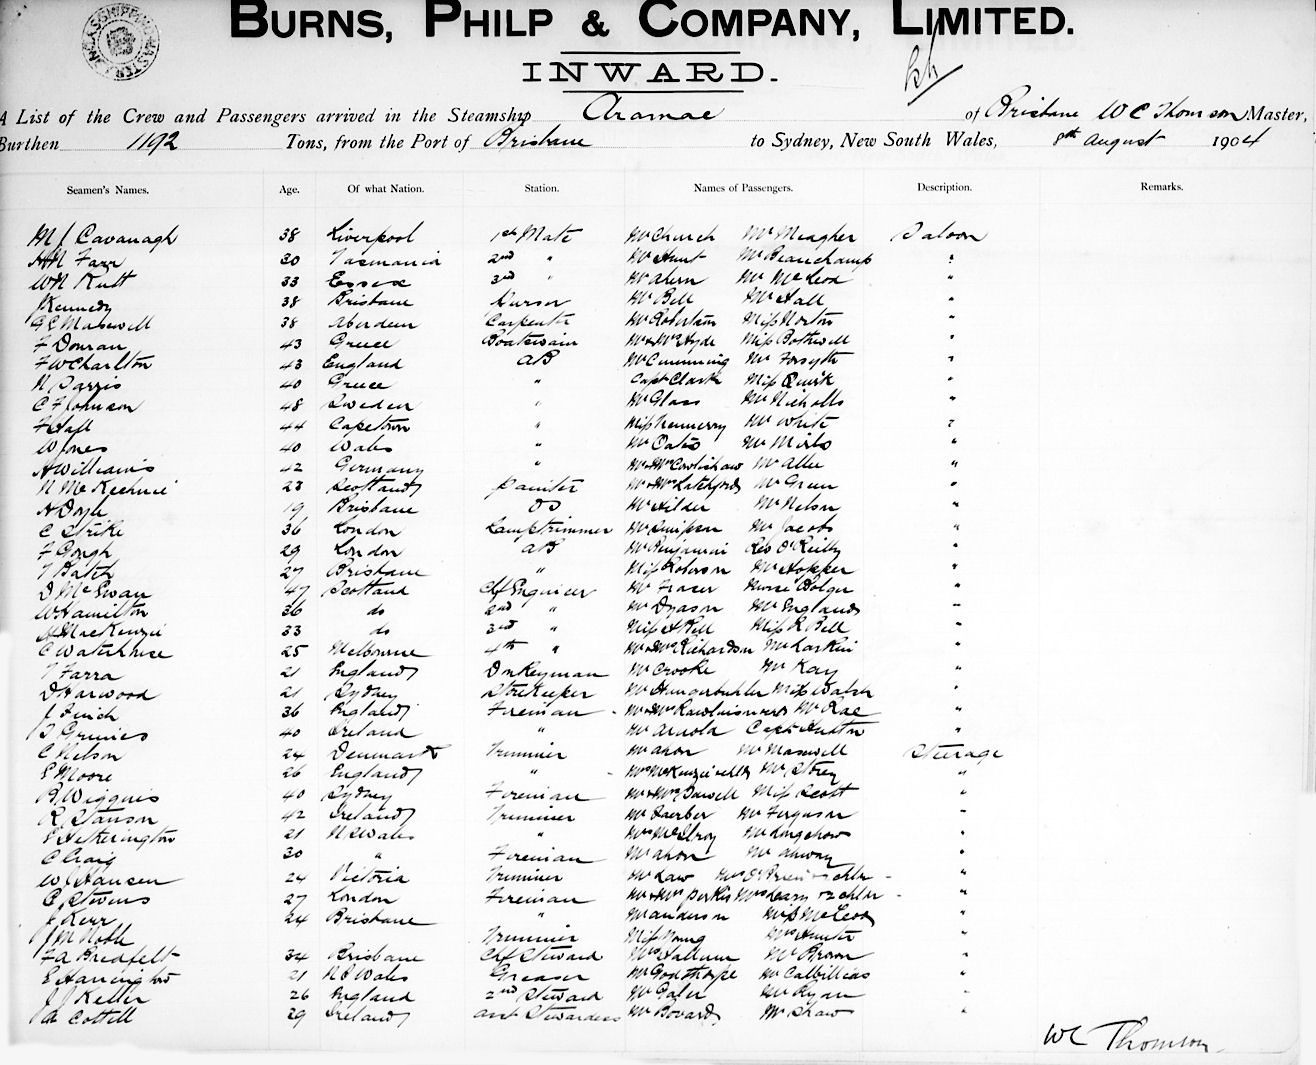 BURNS, PHILP & COMPANY, LIMITED.
INWARD.
A List of the Crew and Passengers arrived in the Steamship Aramac of Brisbane W C Thomson Master,
Burthen 1192 Tons, from the Port of Brisbane to Sydney, New South Wales, 8th August 1904
Seamen's Names. Age. Of what Nation. Station. Names of Passengers. Description. Remarks.
M J Cavanagh 38 Liverpool 1st Mate Mr Church Mr Meagher Saloon
30 Tasmania 2nd " Mr Hunt Mr Beauchamp "
33 Essex 3rd " Mr Ahern Mr McLeod "
J Kennedy 38 Brisbane Purser Mr Bell Mr Hall "
G C Maxwell 38 Aberdeen Carpenter Mr Robertson Miss Norton "
F Donran 43 Greece Boatswain Mr & Mrs Hyde Miss Bothwell "
F W Charlton 43 England AB Mr Cumming Mr Forsyth "
N Parris 40 Greece " Capt Clark Miss Quirk "
C F Johnson 48 Sweden " Mr Glass Mr Nicholls "
F Hall 44 Capetown " Miss Mr White "
W Jones 40 Wales " Mr Oates "
A Williams 42 Germany " Mr & Mrs Cowlishaw Mr Allee "
N McKechnie 23 Scotland Painter Mr & Mrs Latchford Mr Green "
A Doyle 19 Brisbane OS Mr Hilder Mr Nelson "
C Strike 36 London Lamptrimmer Mr Simpson Mr Jacobs "
F Gough 29 London AB Mr Benjamin Rev O'Reilly "
T Batch 27 Brisbane " Miss Robinson Mr Hopper "
D McEwan 47 Scotland Chf Engineer Mr Fraser Nurse Bolger "
W Hamilton 36 do 2nd " Mr Dyason Mr England "
A MacKenzie 33 do 3rd " Miss A Bell Miss R Bell "
C Waterhouse 25 Melbourne 4th " Mr & Mrs Richardson Mr Larkin "
T Farra 21 England Donkeyman Mr Crooke Mr Kay "
D Harwood 21 Sydney Storekeeper Mr Hungerbuhler Miss Walsh "
J Finch 36 England Fireman Mr & Mrs Mr Rae "
40 Ireland " Mr Arnold Capt Hutton "
C Nelson 24 Denmark Trimmer Mr Ahon Mr Maxwell Steerage
E Moore 26 England " Mrs McKenzie & chld Mr Storey "
B Wiggins 40 Sydney Fireman Mr & Mrs Miss Scott "
R Stanson 42 Ireland Trimmer Mr Faerber Mr Ferguson "
E Hetherington 21 N S Wales " Mrs McIlroy Mr Longshow "
C Craig 30 " Fireman Mr Ahon Mr Ahway "
W J Hansen 24 Victoria Trimmer Mr Law Mrs O'Brien chldn "
E Stevens 27 London Fireman Mr & Mrs Perkis Mrs Leary & 2 chldn "
J Kerr 24 Brisbane " Mr Anderson Miss McLeod "
J M Noble Trimmer Miss Young Mrs Hunter "
F A Bredfelt 34 Brisbane Chf Steward Mrs Hallum Mr Brown "
E Harrington 21 N S Wales Greaser Mr Goathorpe Mr "
J J Keller 26 England 2nd Steward Mr Galer Mr Ryan "
A Cottell 29 Ireland asst Stewardess Mr Bovard Mr Shaw "
W C Thomson